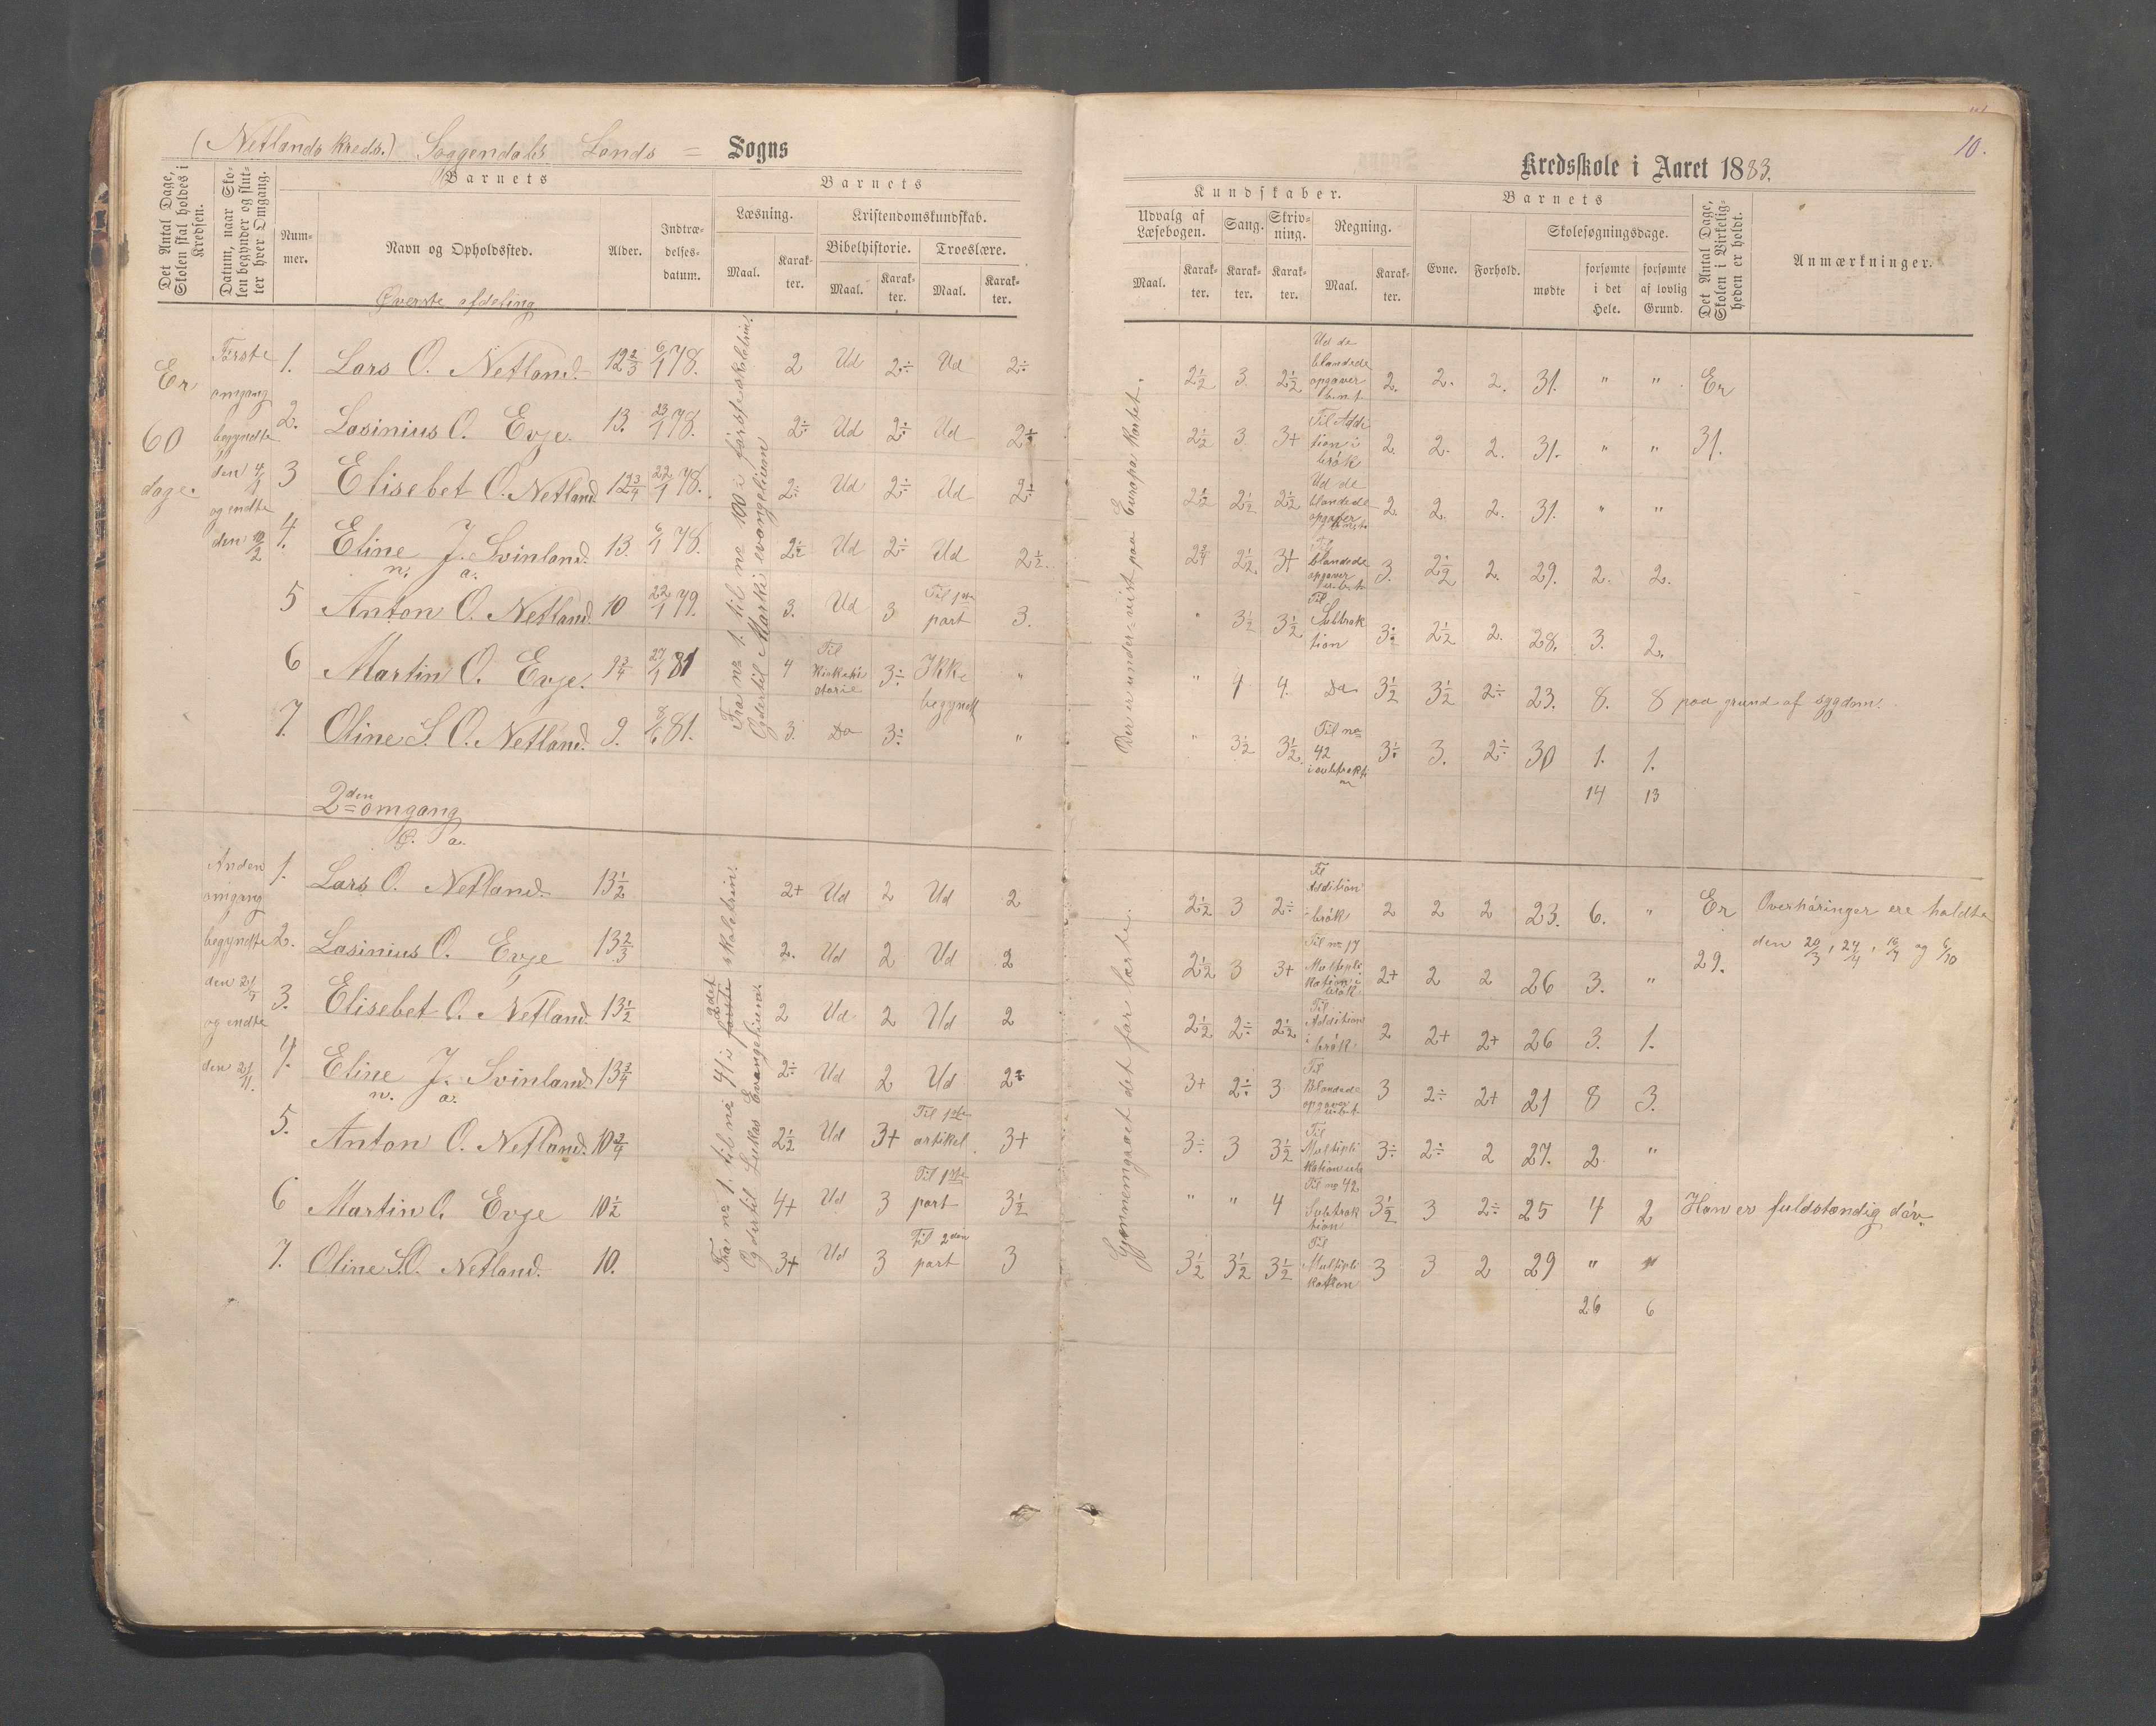 (Netlands kreds.) Soggendals Lands = Sogns
Det Antal Dage, Skolen skal holdes i Kredsen.
Datum, naar Skolen begynder og slutter hver Omgang.
Barnets
Nummer.
Navn og Opholdssted.
Alder.
Indtrædelsesdatum.
Barnets
Læsning.
Kristendomskundskab.
Maal.
Karakter.
Bibelhistorie.
Troeslære.
Maal.
Karakter.
Maal.
Karakter.
Øverste afdeling
Er 60 dage.
Første omgang begyndte den 4/1 og endte den 10/2
Fra no 1. til no 100 i første skoletrin.
Og dertil Marki evangelium
1. Lars O. Netland. 12 2/3 6/1 78. 2 Ud 2÷ Ud 2÷
2. Lasinius O. Evje. 13. 23/1 78. 2÷ Ud 2÷ Ud 2÷
3 Elisebet O. Netland 12 3/4 22/1 78. 2÷ Ud 2÷ Ud 2÷
4. Eline J. Svinland. 13. 6/1 78. 2 1/2 Ud 2÷ Ud 2 1/2.
n. a.
5 Anton O. Netland. 10 22/1 79. 3. Ud 3 Til 1ste part 3.
6 Martin O. Evje. 9 3/4 27/1 81 4 Til Kirkehistorie 3÷ Ikke begyndt "
7. Oline S. O. Netland. 9. 8/6 81. 3. Do 3÷ "
2den omgang
Ø. a.
Anden omgang begyndte den 21/7 og endte den 21/11.
Fra no 1. til no 41 i første 2det skoletrin.
Og dertil Lukas Evangelium.
1. Lars O. Netland. 13 1/2 2+ Ud 2 Ud 2
2. Lasinius O. Evje 13 2/3 2. Ud 2 Ud 2
3. Elisebet O. Netland. 13 1/2 2 Ud 2 Ud 2
4. Eline J. Svinland 13 3/4 2÷ Ud 2 Ud 2÷
n. a.
5. Anton O. Netland. 10 3/4 2 1/2 Ud 3+ Til 1ste artikel 3+
6 Martin O. Evje 10 1/2 4+ Ud 3 Til 1ste part 3 1/2
7. Oline S.O. Netland. 10. 3+ Ud 3 Til 2den part 3
10.
Kredsskole i Aaret 1883.
Kundskaber.
Udvalg af Læsebogen.
Sang.
Skrivning.
Regning.
Maal.
Karakter.
Karakter.
Karakter.
Maal.
Karakter.
Barnets
Evne.
Forhold.
Skolesøgningsdage.
mødte
forsømte i det Hele.
forsømte af lovlig Grund.
Det Antal Dage, Skolen i Virkeligheden er holdt.
Anmærkninger.
Der er under=vist paa Europa Kartet.
2 1/2 3. 2 1/2 Ud de blandede opgaver 2. 2. 2. 31. " " Er
2 1/2 3. 3+ Til Addition i brök 2. 2. 2. 31. " " 31.
2 1/2 2 1/2 2 1/2 Ud de blandede opgaver 2. 2. 2. 31. " "
2 1/2. 3+ Til blandede opgaver 3. 2 1/2 2. 29. 2. 2.
" 3 1/2 3 1/2. Til Subtraktion 3÷ 2 1/2 2. 28. 3. 2.
" 4 4. Do. 3 1/2 3 1/2 2÷ 23. 8. 8 paa grund af sygdom.
" 3 1/2 3 1/2. Til no 42 i subtraktion 3÷ 3. 2÷ 30 1. 1.
14 13
Gjennemgaaet det før lærte.
2 1/2 3 2÷ Til Addition i brök 2 2 2 23. 6. " Er Overhöringer ere holdte
2 1/2 3 3+ Til no 17 Multiplikation i brök 2+ 2 2 26 3. " 29. den 20/3, 24/4, 16/7 og 6/10
2 1/2 2÷ 2 1/2 Til Addition i brök 2 2+ 2+ 26 3. 1.
3+ 2÷ 3 Til Blandede opgaver 3 2÷ 2+ 21 8 3.
3÷ 3 3 1/2 Til Multiplikation 3÷ 2÷ 2 27. 2. "
" " 4 Til no 42 Subtraktion 3 1/2 3 2÷ 25 4 2 Han er fuldstændig döv.
3 1/2 3 1/2 3 1/2 Til Multiplikation 3 3 2 29 " "
26 6